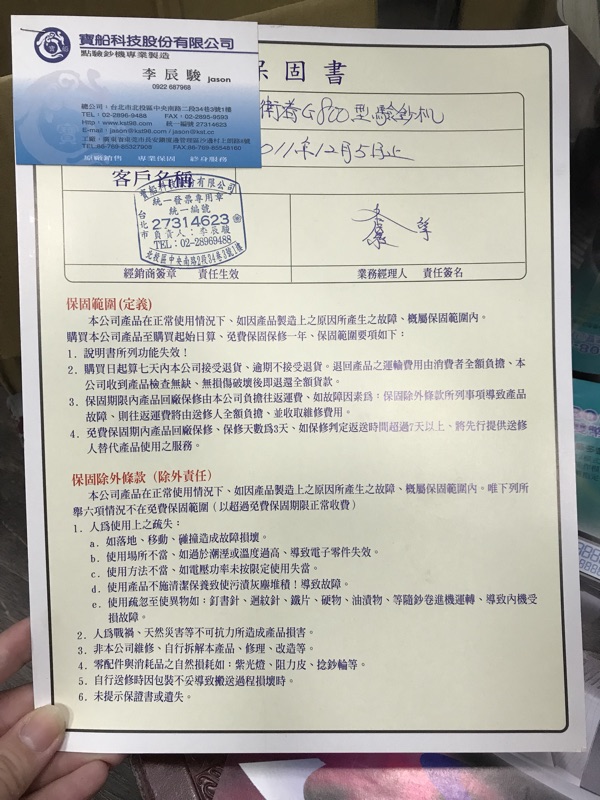 寶船科技股份有限公司
點驗鈔機專業製造
李辰駿 jason
0922 687968
總公司：台北市北投區中央南路二段34巷3號1樓
TEL：02-2896-9488 FAX：02-2895-9593
Http：www.kst98.com 統一編號 27314623
E-mail：jason@kst98.com / jason@kst.cc
TEL:86-769-85327908 FAX:86-769-85548160
原廠銷售 專業保固 終身服務
保固書
型驗鈔机
年12月5日止
客戶名稱
寶船科技股份有限公司
統一發票專用章
統一編號
台北市
27314623
負責人：李辰駿
TEL：02-28969488
北投區中央南路2段34巷3號1樓
經銷商簽章 責任生效
業務經理人 責任簽名
保固範圍(定義)
本公司產品在正常使用情況下、如因產品製造上之原因所產生之故障、概屬保固範圍內。
購買本公司產品至購買起始日算、免費保固保修一年、保固範圍要項如下：
1. 說明書所列功能失效！
2. 購買日起算七天內本公司接受退貨、逾期不接受退貨。退回產品之運輸費用由消費者全額負擔、本
公司收到產品檢查無缺、無損傷破壞後即退還全額貨款。
3. 保固期限內產品回廠保修由本公司負擔往返運費、如故障因素爲：保固除外條款所列事項導致產品
故障、則往返運費將由送修人全額負擔、並收取維修費用。
4. 免費保固期內產品回廠保修、保修天數爲3天、如保修判定返送時間超過7天以上、將先行提供送修
人替代產品使用之服務。
保固除外條款（除外責任）
本公司產品在正常使用情況下、如因產品製造上之原因所產生之故障、概屬保固範圍內。唯下列所
舉六項情況不在免費保固範圍（以超過免費保固期限正常收費）
1. 人爲使用上之疏失：
a. 如落地、移動、碰撞造成故障損壞。
b. 使用場所不當、如過於潮溼或溫度過高、導致電子零件失效。
c. 使用方法不當、如電壓功率未按限定使用失當。
d. 使用產品不施清潔保養致使污漬灰塵堆積！導致故障。
e. 使用疏忽至使異物如：釘書針、迴紋針、鐵片、硬物、油漬物、等隨鈔卷進機運轉、導致內機受
損故障。
2. 人爲戰禍、天然災害等不可抗力所造成產品損害。
3. 非本公司維修、自行拆解本產品、修理、改造等。
4. 零配件與消耗品之自然損耗如：紫光燈、阻力皮、捻鈔輪等。
5. 自行送修時因包裝不妥導致搬送過程損壞時。
6. 未提示保證書或遺失。